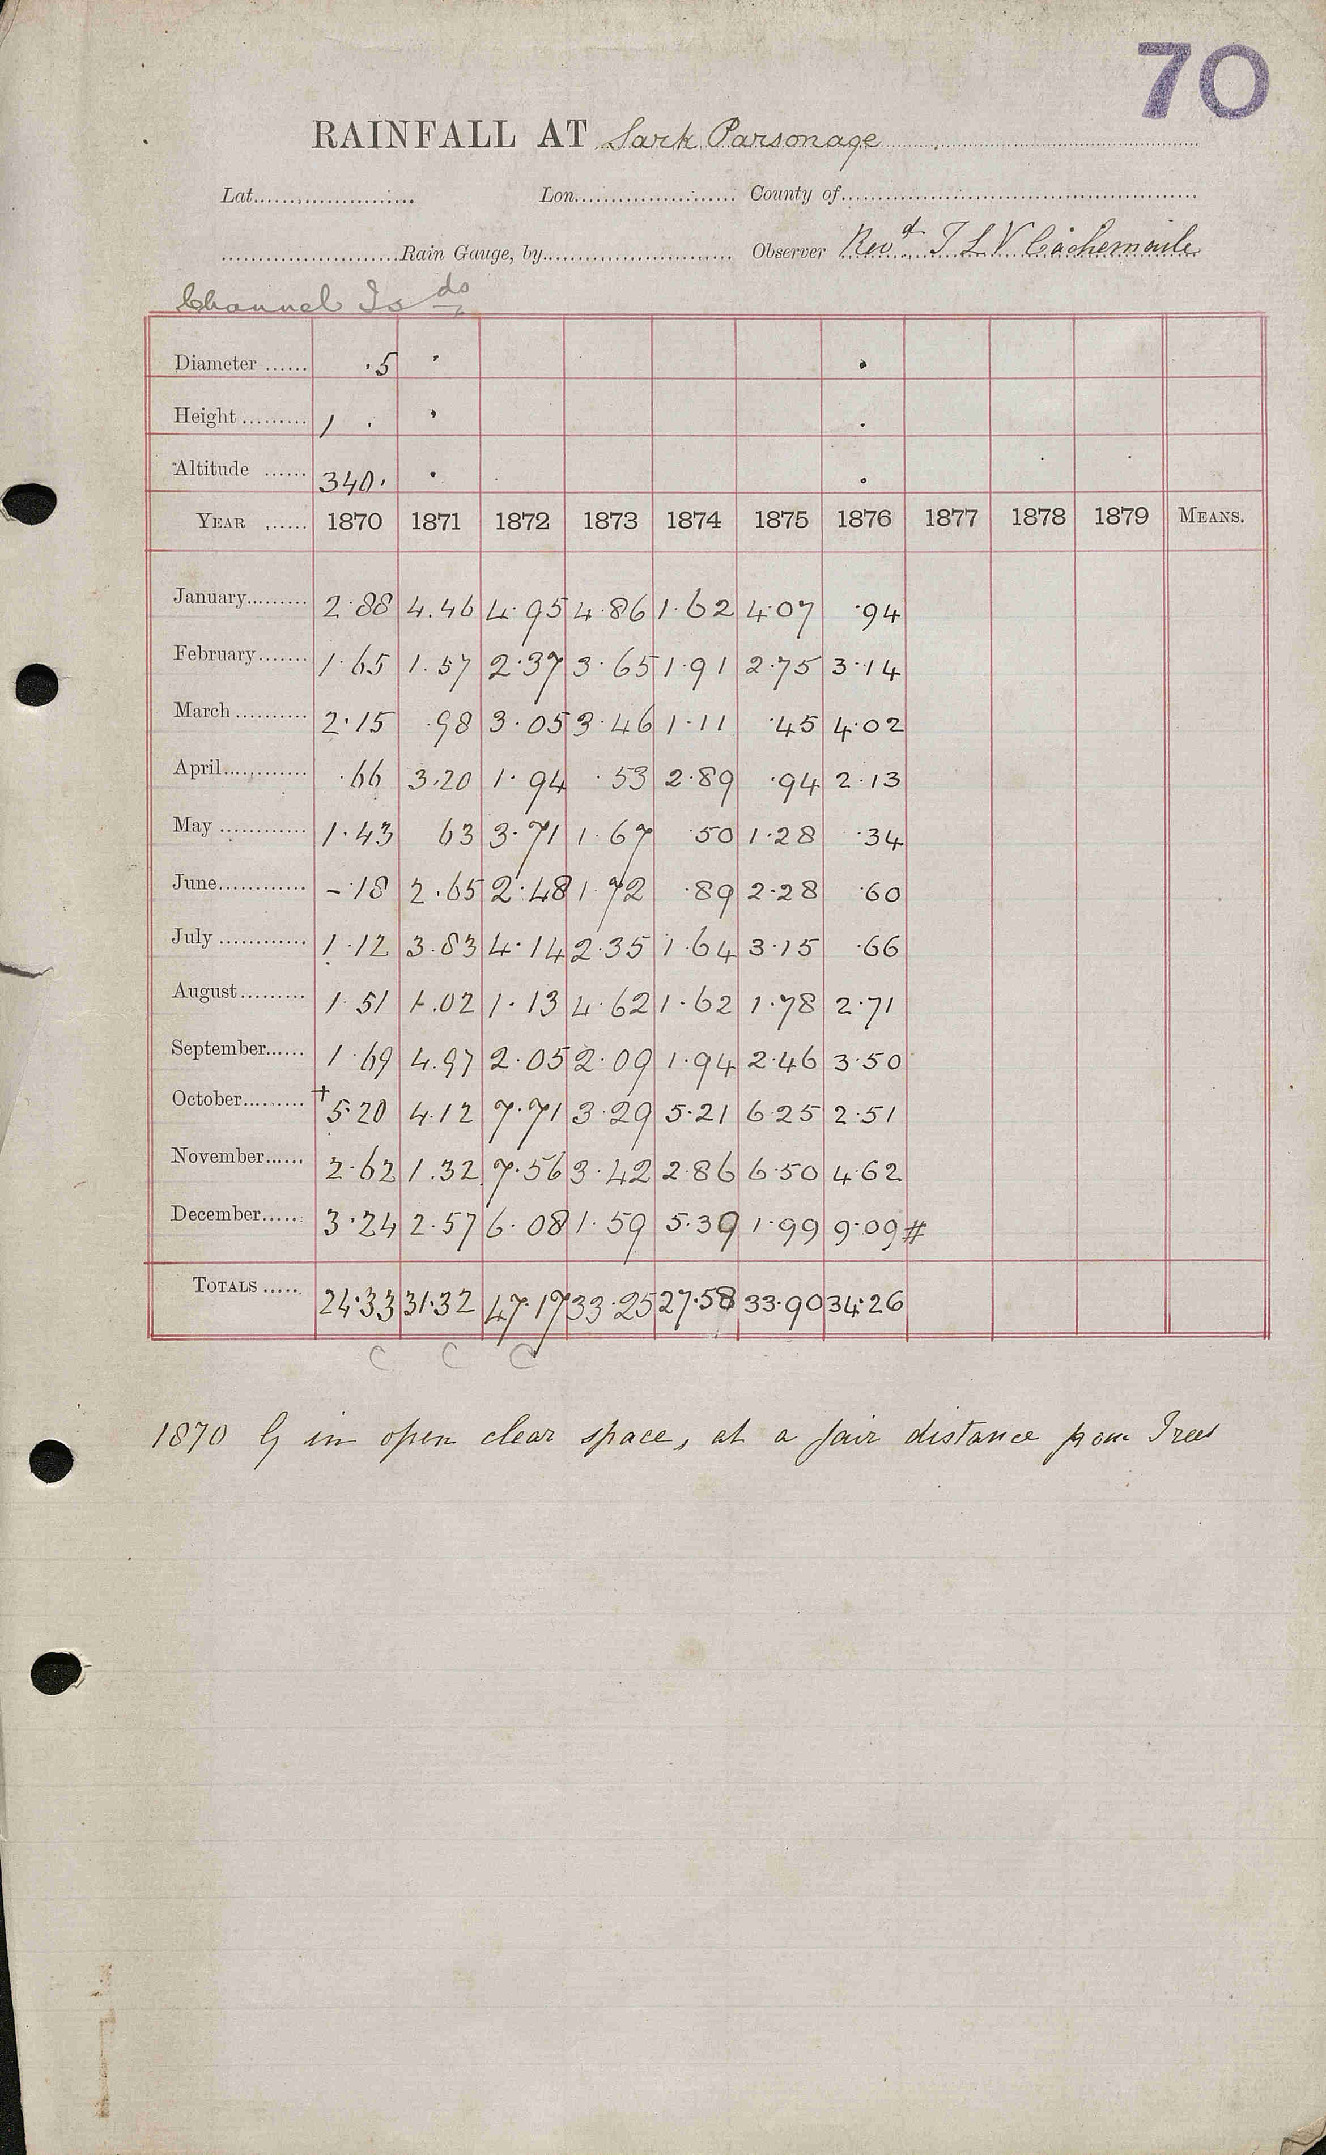 70
RAINFALL AT Sark Parsonage
Lat. Lon. County of
Rain Gauge, by Observer Revd J L V Cachemaille
Channel Isds
Diameter ·5
Height 1
Altitude 340·
YEAR 1870 1871 1872 1873 1874 1875 1876 1877 1878 1879 MEANS.
January 2·88 4.46 4·95 4·86 1·62 4·07 ·94
February 1·65 1.57 2·37 3·65 1·91 2·75 3·14
March 2·15 ·98 3·05 3·46 1·11 ·45 4·02
April ·66 3.20 1·94 ·53 2·89 ·94 2·13
May 1·43 63 3·71 1·67 ·50 1·28 ·34
June -·18 2.65 2·48 1·72 ·89 2·28 ·60
July 1·12 3·83 4·14 2·35 1·64 3·15 ·66
August 1·51 1.02 1·13 4·62 1·62 1·78 2·71
September 1·69 4.97 2·05 2·09 1·94 2·46 3·50
October †5·20 4·12 7·71 3·29 5·21 6·25 2·51
November 2·62 1.32 7·56 3·42 2·86 6·50 4·62
December 3·24 2·57 6·08 1·59 5·39 1·99 9·09#
TOTALS 24·33 31·32 47·17 33·25 27·58 33·90 34·26
C C C
1870 G in open clear space, at a fair distance from Trees